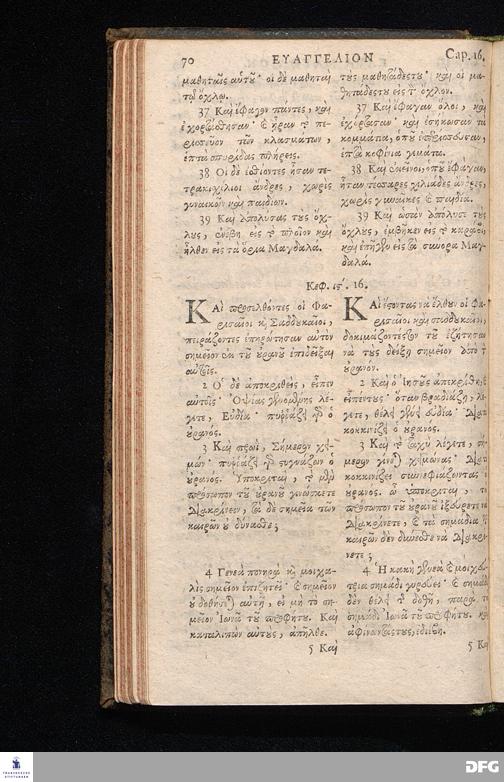 70 ΕΥΑΓΓΕΛΙΟΝ Cap. 16.
μαθηταῖς αὑτοῦ· οἱ δὲ μαθηταὶ
τῷ ὄχλῳ.
37 Καὶ ἔφαγον πάντες, καὶ
ἐχορτάσθησαν· καὶ ἦραν τὸ πε-
ρισσεῦον τῶν κλασμάτων,
ἑπτὰ σπυρίδας πλήρεις.
38 Οἱ δὲ ἐσθίοντες ἦσαν τε-
τρακιχίλιοι ἄνδρες, χωρὶς
γυναικῶν καὶ παιδίων.
39 Καὶ ἀπολύσας τοὺς ὄχ-
λους, ἐνέβη εἰς τὸ πλοῖον καὶ
ἦλθεν εἰς τὰ ὅρια Μαγδαλά.
τοὺς μαθητάδες του· καὶ οἱ μα-
θητάδες του εἰς τὸν ὄχλον.
37 Καὶ ἔφαγαν ὅλοι, καὶ
ἐχόρτασαν· καὶ ἐσήκωσαν τὰ
κομμάτια, ὁποῦ
ἑπτὰ κοφίνια γεμάτα.
38 Καὶ ἐκεῖνοι, ὁποῦ ἔφαγαν,
ἦταν τέσσαρες χιλιάδες ἄνδρες,
χωρὶς γυναῖκες καὶ παιδία.
39 Καὶ ὡσὰν ἀπόλυσε τοὺς
ὄχλους, ἐμβῆκεν εἰς τὸ καράβι,
καὶ ἐπῆγεν εἰς τὰ σύνορα Μαγ-
δαλά.
Κεφ. ις΄. 16.
ΚΑὶ προσελθόντες οἱ Φα-
ρισαῖοι καὶ Σαδδουκαῖοι,
πειράζοντες ἐπηρώτησαν αὐτὸν
σημεῖον ἐκ τοῦ οὐρανοῦ ἐπιδεῖξαι
αὐτοῖς.
2 Ὁ δὲ ἀποκριθεὶς, εἶπεν
αὐτοῖς· Ὀψίας γενομένης λέ-
γετε, Εὐδία· πυῤῥάζει γὰρ ὁ
οὐρανός.
3 Καὶ πρωῒ, Σήμερον χει-
μών· πυῤῥάζει γὰρ στυγνάζων ὁ
οὐρανός. Ὑποκριταὶ, τὸ μὲν
πρόσωπον τοῦ οὐρανοῦ γινώσκετε
διακρίνειν, τὰ δὲ σημεῖα τῶν
καιρῶν οὐ δύνασθε;
4 Γενεὰ πονηρὰ καὶ μοιχα-
λὶς σημεῖον ἐπιζητεῖ· καὶ σημεῖον
οὐ δοθήσεται αὐτῇ, εἰ μὴ τὸ ση-
μεῖον Ἰωνᾶ τοῦ προφήτου. Καὶ
καταλιπὼν αὐτοὺς, ἀπῆλθε.
5 Καὶ
ΚΑὶ ἔσοντας νὰ ἔλθουν οἱ Φα-
ρισαῖοι καὶ Σαδδουκαῖοι,
δοκιμάζοντές τον τοῦ ἐζήτησαν
νὰ τοὺς δείξῃ σημεῖον ἀπὸ τὸν
οὐρανόν.
2 Καὶ ὁ Ἰησοῦς ἀπεκρίθη, καὶ
εἶπέν τους· ὅταν βραδιάζῃ, λέ-
γετε, θέλει γένῃ εὐδία· διατὶ
κοκκινίζει ὁ οὐρανός.
3 Καὶ τὸ ταχὺ λέγετε, σή-
μερον γίνεται χειμῶνας· διατὶ
κοκκινίζει συννεφιάζοντας ὁ
οὐρανός. ὦ ὑποκριταὶ, τὸ
πρόσωπον τοῦ οὐρανοῦ ἐξεύρετε νὰ
διακρίνετε, καὶ τὰ σημάδια τῶν
καιρῶν δὲν δύνεσθε νὰ διακρί-
νετε;
4 Ἡ κακὴ γενεὰ καὶ μοιχα-
σημάδι γυρεύει· καὶ σημάδι
δὲν θέλει τῆς δοθῇ, παρὰ τὸ
σημάδι Ἰωνᾶ τοῦ προφήτου. καὶ
ἀφίνωντάς τους, ἐδιέβη.
5 Καὶ
DFG